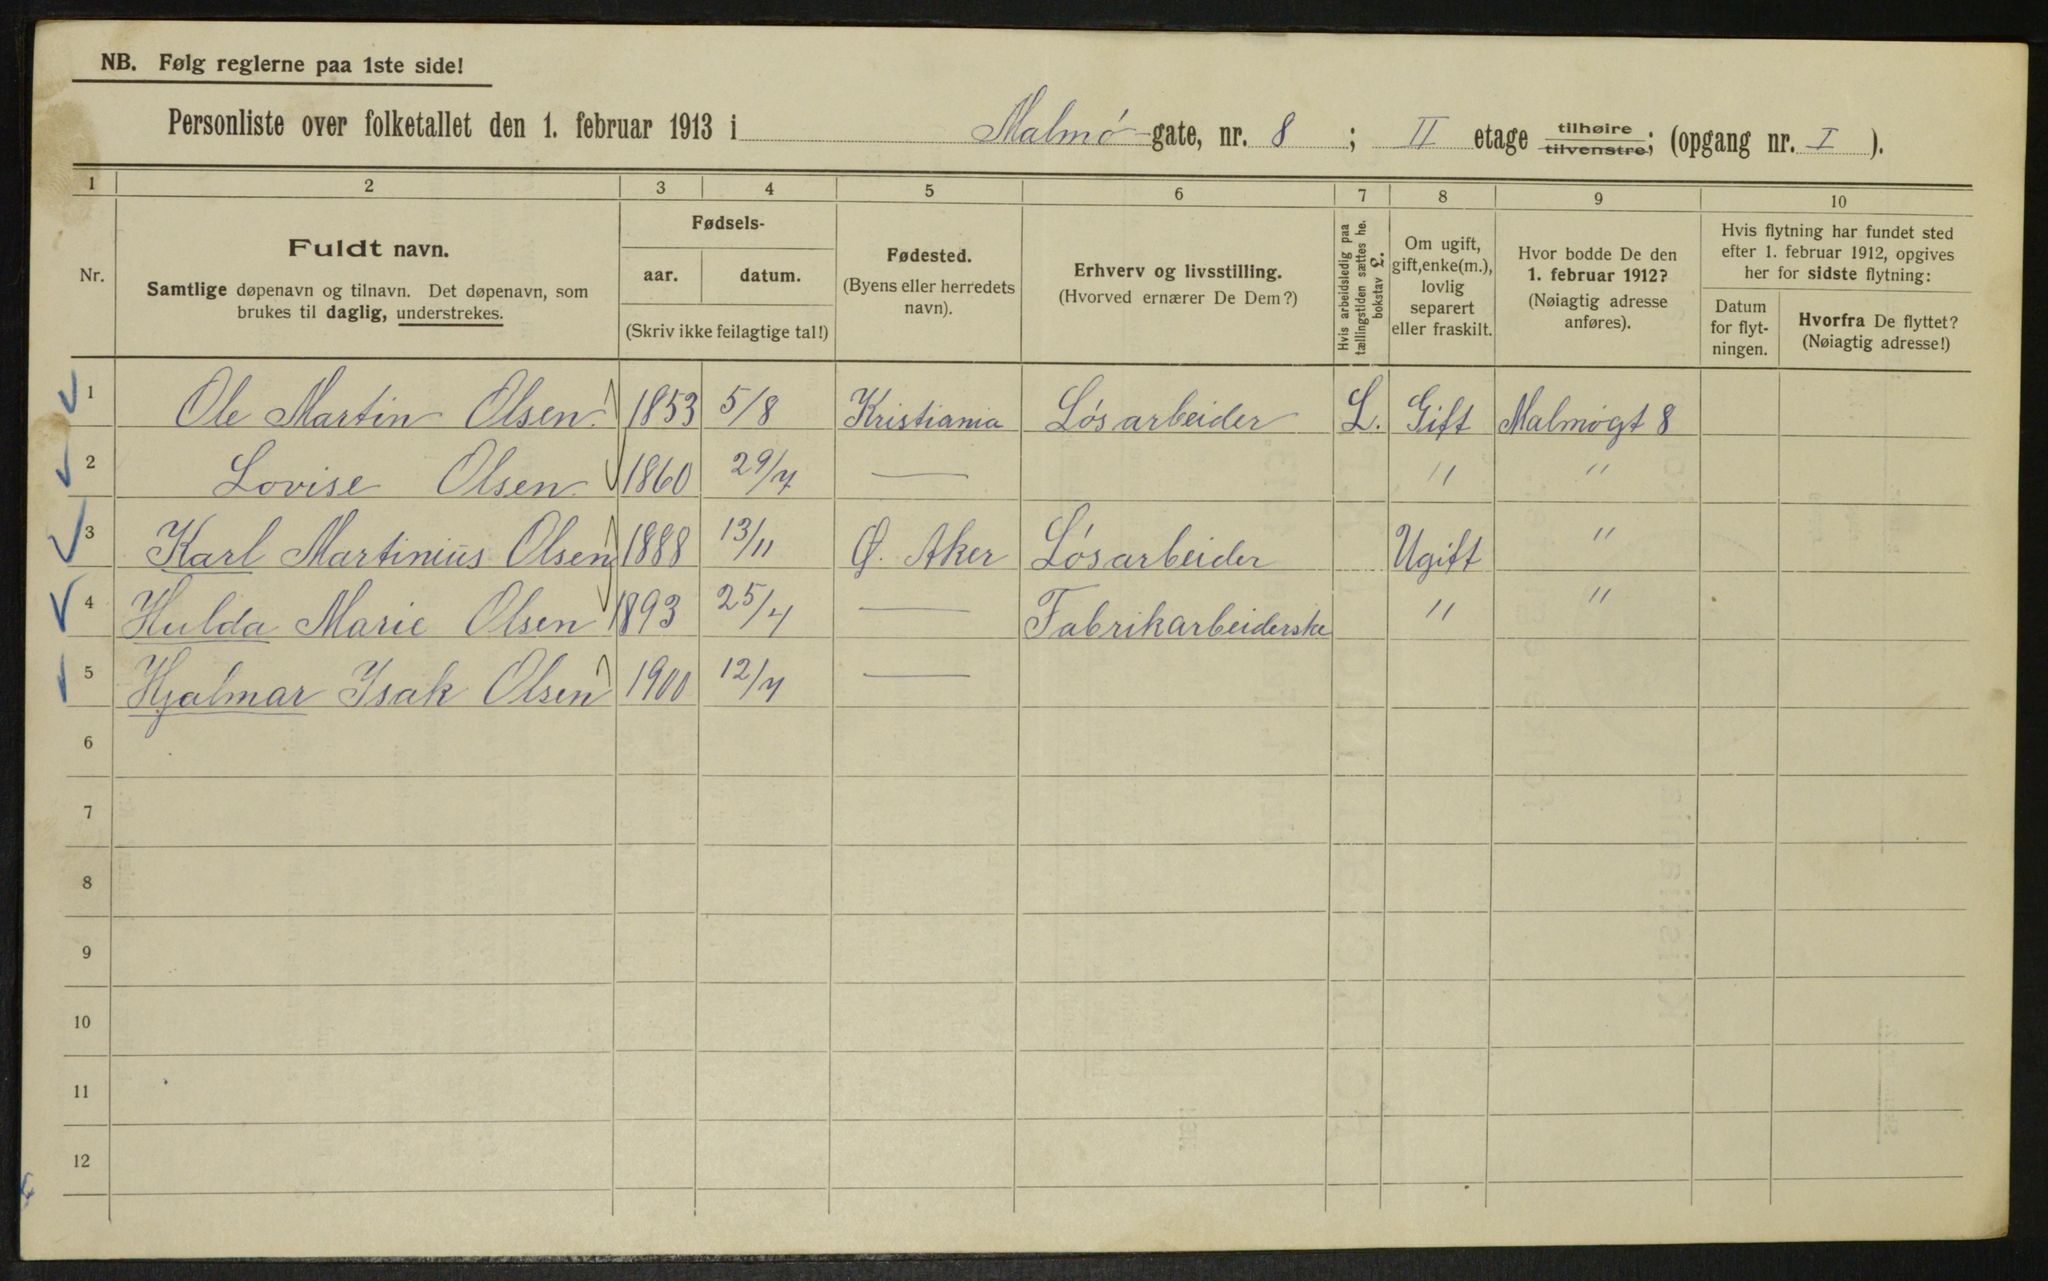 NB. Følg reglerne paa 1ste side!
Personliste over folketallet den 1. februar 1913 i Malmø-gate, nr. 8 ; II etage tilhøire tilvenstre; (opgang nr. I ).
1 2 3 4 5 6 7 8 9 10
Nr.
Fuldt navn.
Samtlige døpenavn og tilnavn. Det døpenavn, som
brukes til daglig, understrekes.
Fødsels-
aar. datum.
(Skriv ikke feilagtige tal!)
Fødested.
(Byens eller herredets
navn).
Erhverv og livsstilling.
(Hvorved ernærer De Dem?)
Hvis arbeidsledig paa
tællingstiden sættes he.
bokstav L.
Om ugift,
gift, enke(m.),
lovlig
separert
eller fraskilt.
Hvor bodde De den
1. februar 1912?
(Nøiagtig adresse
anføres).
Hvis flytning har fundet sted
efter 1. februar 1912, opgives
her for sidste flytning:
Datum
for flyt-
ningen.
Hvorfra De flyttet?
(Nøiagtig adresse!)
1 Ole Martin Olsen 1853 5/8 Kristiania Løsarbeider L. Gift Malmøgt 8
2 Lovise Olsen 1860 29/7 — " "
3 Karl Martinius Olsen 1888 13/11 Ø. Aker Løsarbeider Ugift "
4 Hulda Marie Olsen 1893 25/4 — Fabrikarbeiderske " "
5 Hjalmar Isak Olsen 1900 12/7 —
6
7
8
9
10
11
12